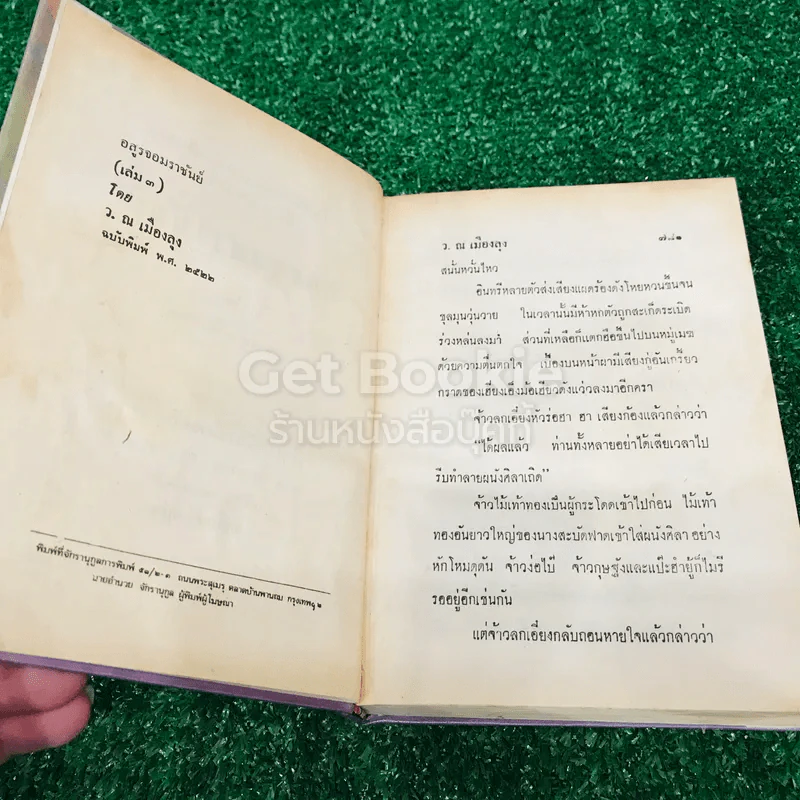 อสูรจอมราชันย์
(เล่ม ๓)
โดย
ว. ณ เมืองลุง
ฉบับพิมพ์ พ.ศ. ๒๕๒๒
พิมพ์ที่จักรานุกูลการพิมพ์ ๕๑/๒-๓ ถนนพระสุเมรุ ตลาดบ้านพานถม กรุงเทพฯ ๒
นายอำนวย จักรานุกูล ผู้พิมพ์ผู้โฆษณา
ว. ณ เมืองลุง
สนั่นหวั่นไหว
อินทรีหลายตัวส่งเสียงแผดร้องดังโหยหวนขึ้นจน
ชุลมุนวุ่นวาย ในเวลานั้นมีห้าหกตัวถูกสะเก็ดระเบิด
ร่วงหล่นลงมา ส่วนที่เหลือก็แตกฮือขึ้นไปบนหมู่เมฆ
ด้วยความตื่นตกใจ เบื้องบนหน้าผามีเสียงกู่อันเกรี้ยว
กราดของเฮียงเอ็งม้อเฮียวดังแว่วลงมาอีกครา
จ้าวลกเอี้ยงหัวร่อฮา ฮา เสียงก้องแล้วกล่าวว่า
“ได้ผลแล้ว ท่านทั้งหลายอย่าได้เสียเวลาไป
รีบทำลายผนังศิลาเถิด”
จ้าวไม้เท้าทองเป็นผู้กระโดดเข้าไปก่อน ไม้เท้า
ทองอันยาวใหญ่ของนางสะบัดฟาดเข้าใส่ผนังศิลา อย่าง
หักโหมดุดัน จ้าวง่อไบ๊ จ้าวกุษฐังและแป๊ะฮำยู้ก็ไม่รี
รออยู่อีกเช่นกัน
แต่จ้าวลกเอี้ยงกลับถอนหายใจแล้วกล่าวว่า
Get Bookie
ร้านหนังสือบุ๊คกี้